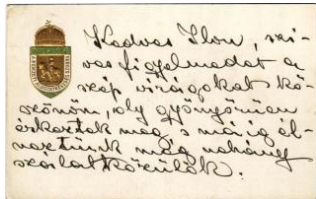 Kedves Ilon, szi-
ves figyelmedet a
szép virágokat kö-
szönöm, oly gyönyörüen
érkeztek meg s máig él-
veztünk még nehány
szálat közülök.